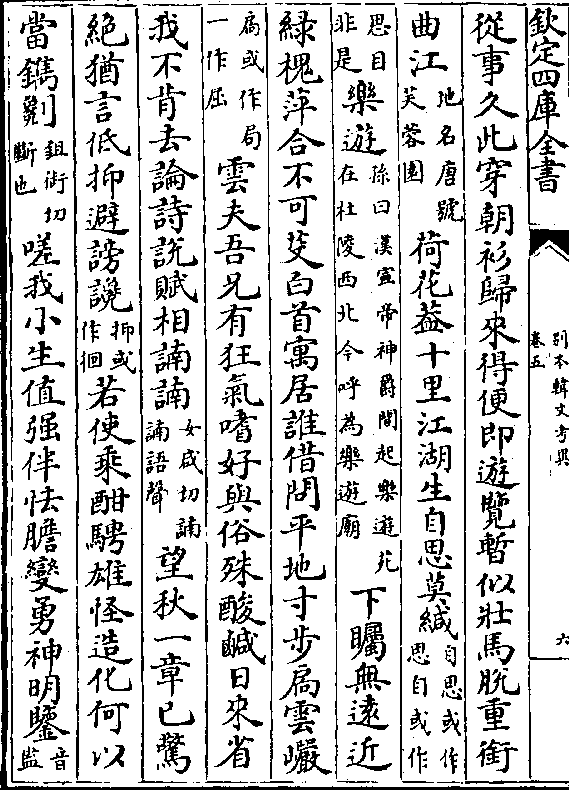 欽定四庫全書
别本韓文考異
卷五
六
從事久此穿朝衫歸來得便即遊覽暫似壯馬脫重銜
曲江地名唐號芙蓉園荷花葢十里江湖生自思莫緘自思或作思自或作
思目非是樂遊孫曰漢宣帝神爵間起樂遊苑在杜陵西北今呼為樂遊廟下矚無遠近
緑槐萍合不可芟白首寓居誰借問平地寸步扃雲巖
扃或作局一作屈雲夫吾兄有狂氣嗜好與俗殊酸鹹日來省
我不肯去論詩説賦相諵諵女咸切諵諵語聲望秋一章已驚
絶猶言低抑避謗讒抑或作徊若使乘酣騁雄怪造化何以
當鐫劖鉏銜切斷也嗟我小生值强伴怯膽變勇神明鑒音監